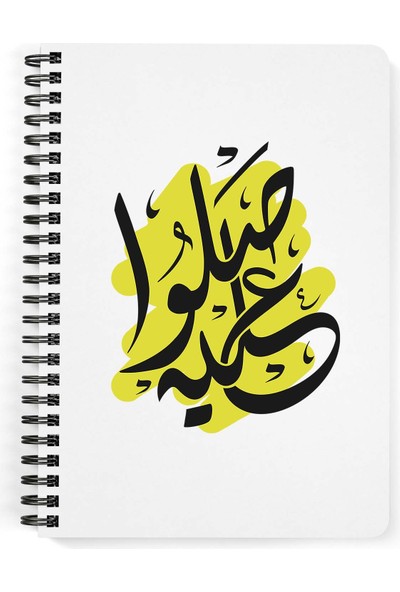 صلوا
عليه